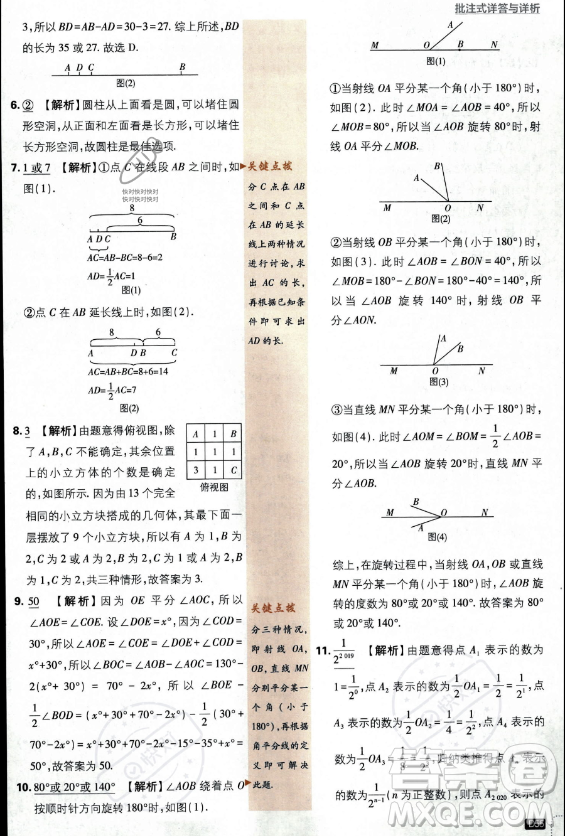 批注式详答与详析
3,所以 BD=AD-AB=30-3=27. 综上所述,BD
的长为 35 或 27. 故选 D.
A D C B
图(2)
6. ② 【解析】圆柱从上面看是圆,可以堵住圆
形空洞,从正面和左面看是长方形,可以堵住
长方形空洞,故圆柱是最佳选项.
7. 1 或 7 【解析】①点 C 在线段 AB 之间时,如
图(1).
快对快对快对
快对快对快对
8
6
A D C B
AC=AB-BC=8-6=2
AD=1/2AC=1
图(1)
②点 C 在 AB 延长线上时,如图(2).
8 6
A D B C
AC=AB+BC=8+6=14
AD=1/2AC=7
图(2)
8. 3 【解析】由题意得俯视图,除
了 A,B,C 不能确定,其余位置
上的小立方体的个数是确定
的,如图所示. 因为由 13 个完全
A 1 B
1 1 1
3 1 C
俯视图
相同的小立方块搭成的几何体,其最下面一
层摆放了 9 个小立方块,所以有 A 为 1,B 为
2,C 为 2 或 A 为 2,B 为 2,C 为 1 或 A 为 2,B
为 1,C 为 2,共三种情形,故答案为 3.
9. 50 【解析】因为 OE 平分∠AOC,所以
∠AOE=∠COE. 设∠DOE=x°,因为∠COD=
30°,所以∠AOE=∠COE=∠DOE+∠COD=
x°+30°,所以∠BOC=∠AOB-∠AOC=130°-
2(x°+30°)=70°-2x°,所以∠BOE-
1/2∠BOD=(x°+30°+70°-2x°)-1/2(30°+
70°-2x°)=x°+30°+70°-2x°-15°-35°+x°=
50°,故答案为 50.
10. 80°或 20°或 140° 【解析】∠AOB 绕着点 O
按顺时针方向旋转 180°时,如图(1).
关键点拨
分 C 点在 AB
之间和 C 点
在 AB 的延长
线上两种情况
进行讨论,求
出 AC 的长,
再根据已知条
件即可求出
AD 的长.
关键点拨
分三种情况,
即射线 OA,
OB,直线 MN
分别平分某一
个角(小于
180°),再根据
角平分线的定
义即可解决
此题.
A
M O B N
图(1)
①当射线 OA 平分某一个角(小于 180°)时,
如图(2). 此时∠MOA=∠AOB=40°,所以
∠MOB=80°,所以∠AOB 旋转 80°时,射
线 OA 平分∠MOB.
A
B
M O N
图(2)
②当射线 OB 平分某一个角(小于 180°)时,
如图(3). 此时∠AOB=∠BON=40°,所以
∠MOB=180°-∠BON=180°-40°=140°,所
以当∠AOB 旋转 140°时,射线 OB 平
分∠AON.
A
B
M O N
图(3)
③当直线 MN 平分某一个角(小于 180°)时,
如图(4). 此时∠AOM=∠BOM=1/2∠AOB=
20°,所以当∠AOB 旋转 20°时,直线 MN 平
分∠AOB.
B
M O N
A
图(4)
综上,在旋转过程中,当射线 OA,OB 或直线
MN 平分某一个角(小于 180°)时,∠AOB 旋
转的度数为 80°或 20°或 140°. 故答案为 80°
或 20°或 140°.
11. 1/2²⁰¹⁹ 【解析】由题意得点 A₁ 表示的数为
1=1/2⁰,点 A₂ 表示的数为1/2OA₁=1/2¹,点
A₃ 表示的数为1/2OA₂=1/2²,点 A₄ 表示的
数为1/2OA₃=1/2³,归纳类推得点 Aₙ 表示的
数为1/2ⁿ⁻¹(n 为正整数),则点 A₂₀₂₀ 表示的